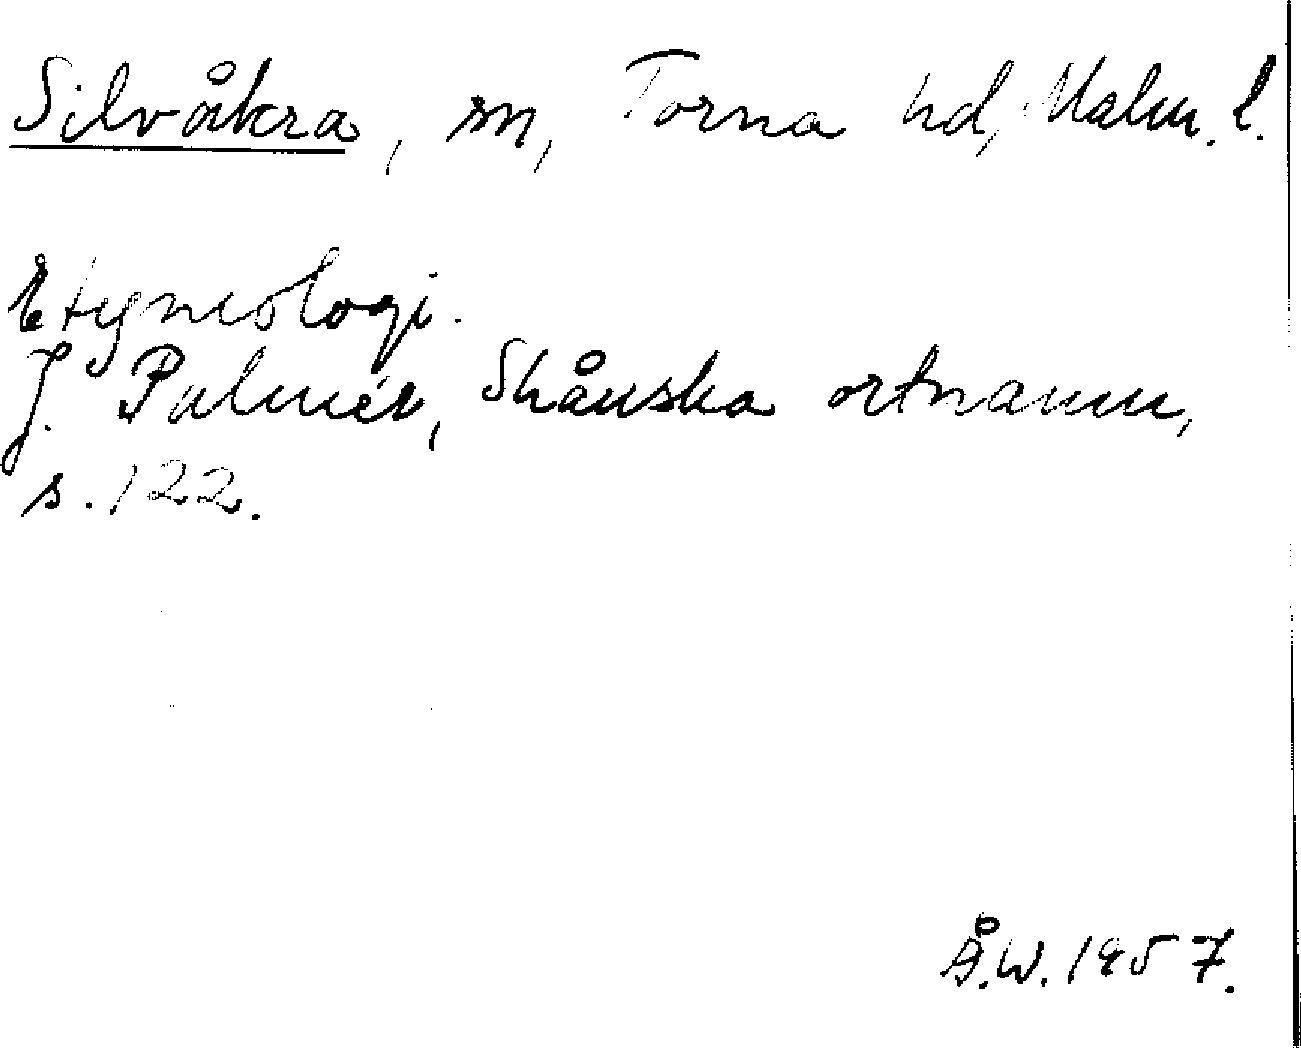 Silvåkra, sn, Torna hd, Malm. l.
Etymologi.
J. Palmér, Skånska ortnamn,
s. 122.
Å.W. 1957.